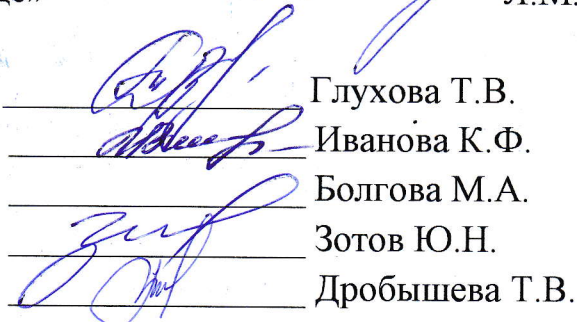 Глухова Т.В.
Иванова К.Ф.
Болгова М.А.
Зотов Ю.Н.
Дробышева Т.В.